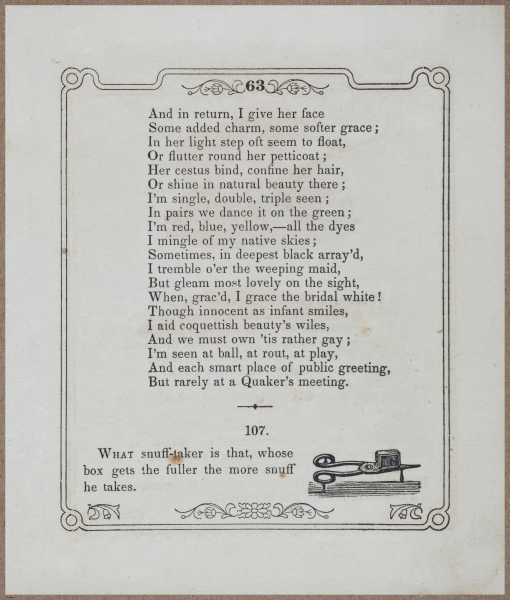 63
And in return, I give her face
Some added charm, some softer grace;
In her light step oft seem to float,
Or flutter round her petticoat;
Her cestus bind, confine her hair,
Or shine in natural beauty there;
I'm single, double, triple seen;
In pairs we dance it on the green;
I'm red, blue, yellow,—all the dyes
I mingle of my native skies;
Sometimes, in deepest black array'd,
I tremble o'er the weeping maid,
But gleam most lovely on the sight,
When, grac'd, I grace the bridal white!
Though innocent as infant smiles,
I aid coquettish beauty's wiles,
And we must own 'tis rather gay;
I'm seen at ball, at rout, at play,
And each smart place of public greeting,
But rarely at a Quaker's meeting.
107.
WHAT snuff-taker is that, whose
box gets the fuller the more snuff
he takes.